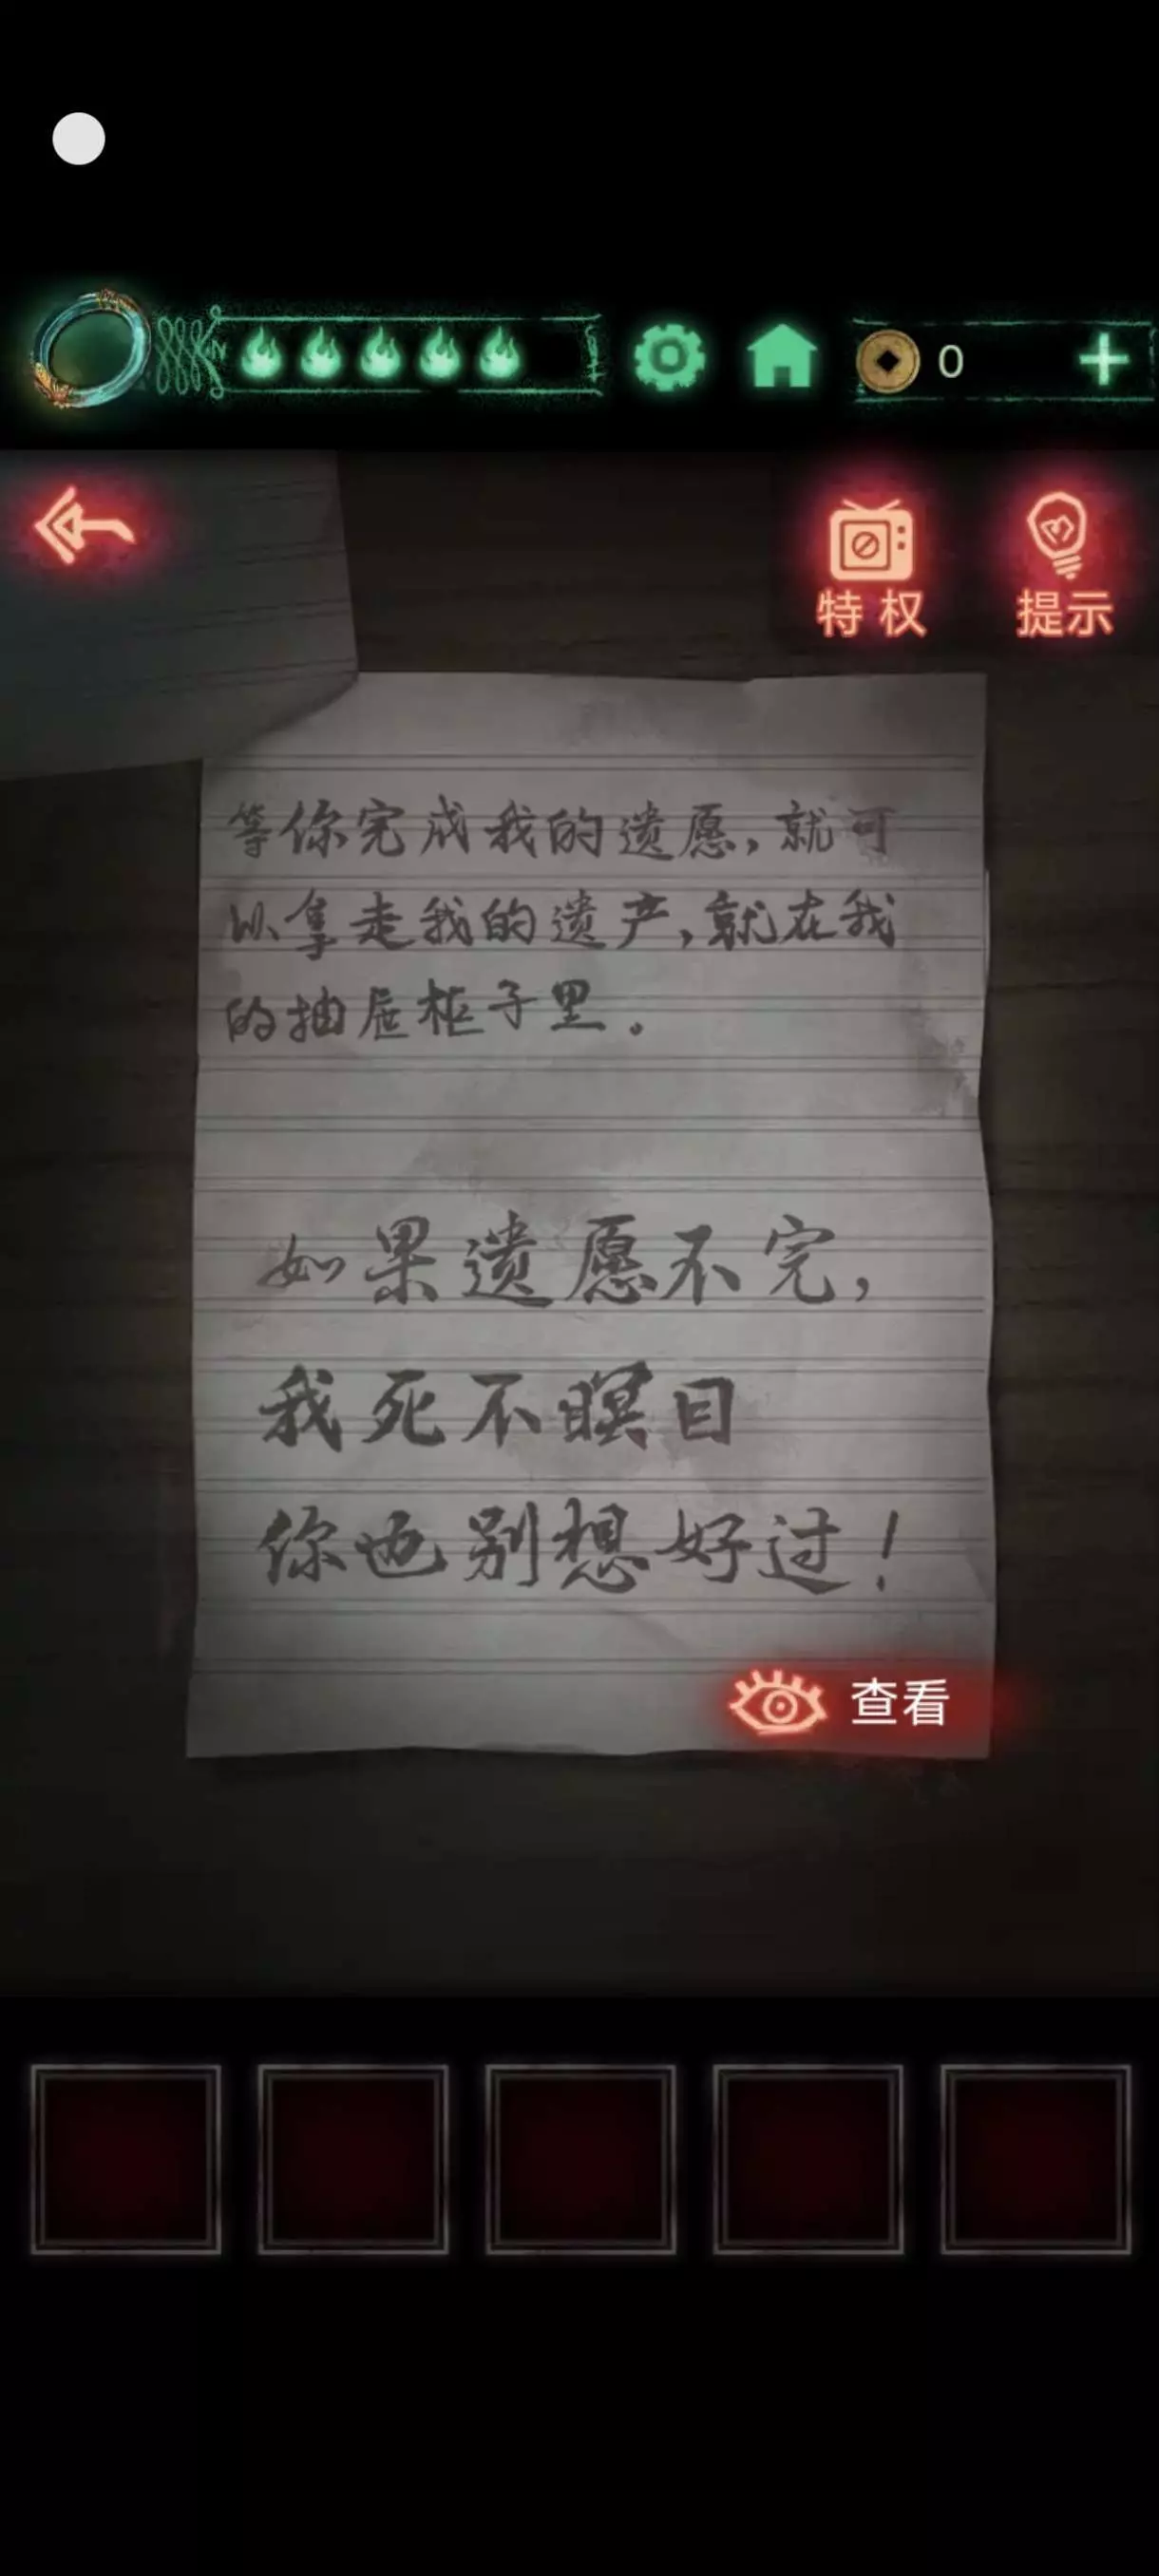 0
特权
提示
等你完成我的遗愿，就可
以拿走我的遗产，就在我
的抽屉柜子里。
如果遗愿不完，
我死不瞑目
你也别想好过！
查看